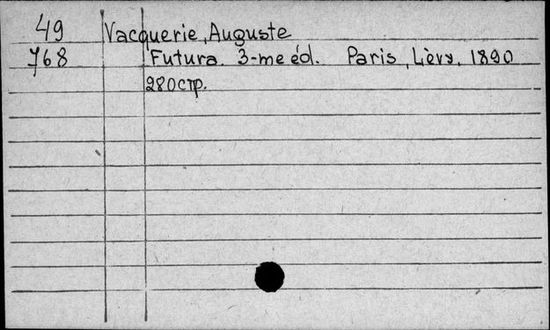 49 Vacquerie, Auguste
768 Futura. 3-me éd. Paris, Lèvy, 1890
280стр.